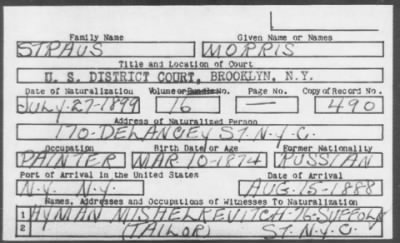 Family Name Given Name or Names
STRAUS MORRIS
Title and Location of Court
U. S. DISTRICT COURT, BROOKLYN, N.Y.
Date of Naturalization Volume or Bundle No. Page No. Copy of Record No.
JULY-27-1899 16 — 490
Address of Naturalized Person
170-DELANCEY ST. N.Y.C.
Occupation Birth Date or Age Former Nationality
PAINTER MAR 10-1874 RUSSIAN
Port of Arrival in the United States Date of Arrival
N.Y. N.Y. AUG-15-1888
Names, Addresses and Occupations of Witnesses To Naturalization
1 HYMAN MISHELKEVITCH-76-SUFFOLK
2 (TAILOR) ST. N.Y.C.